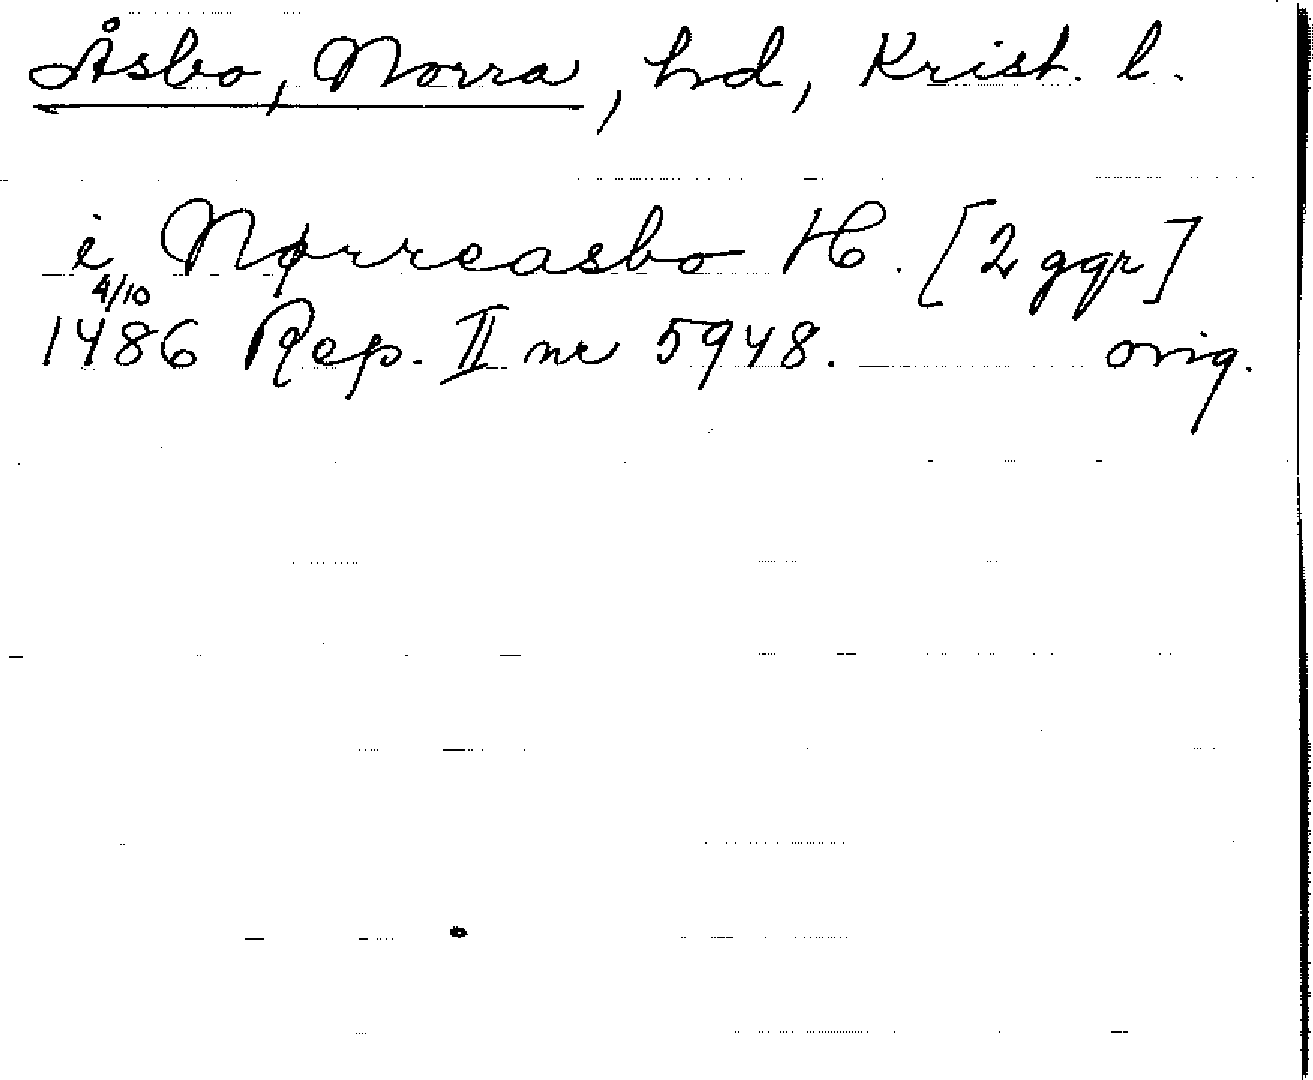 Åsbo, Norra, hd, Krist. l.
i Nørreasbo H. [2 ggr]
4/10
1486 Rep. II nr 5948. orig.